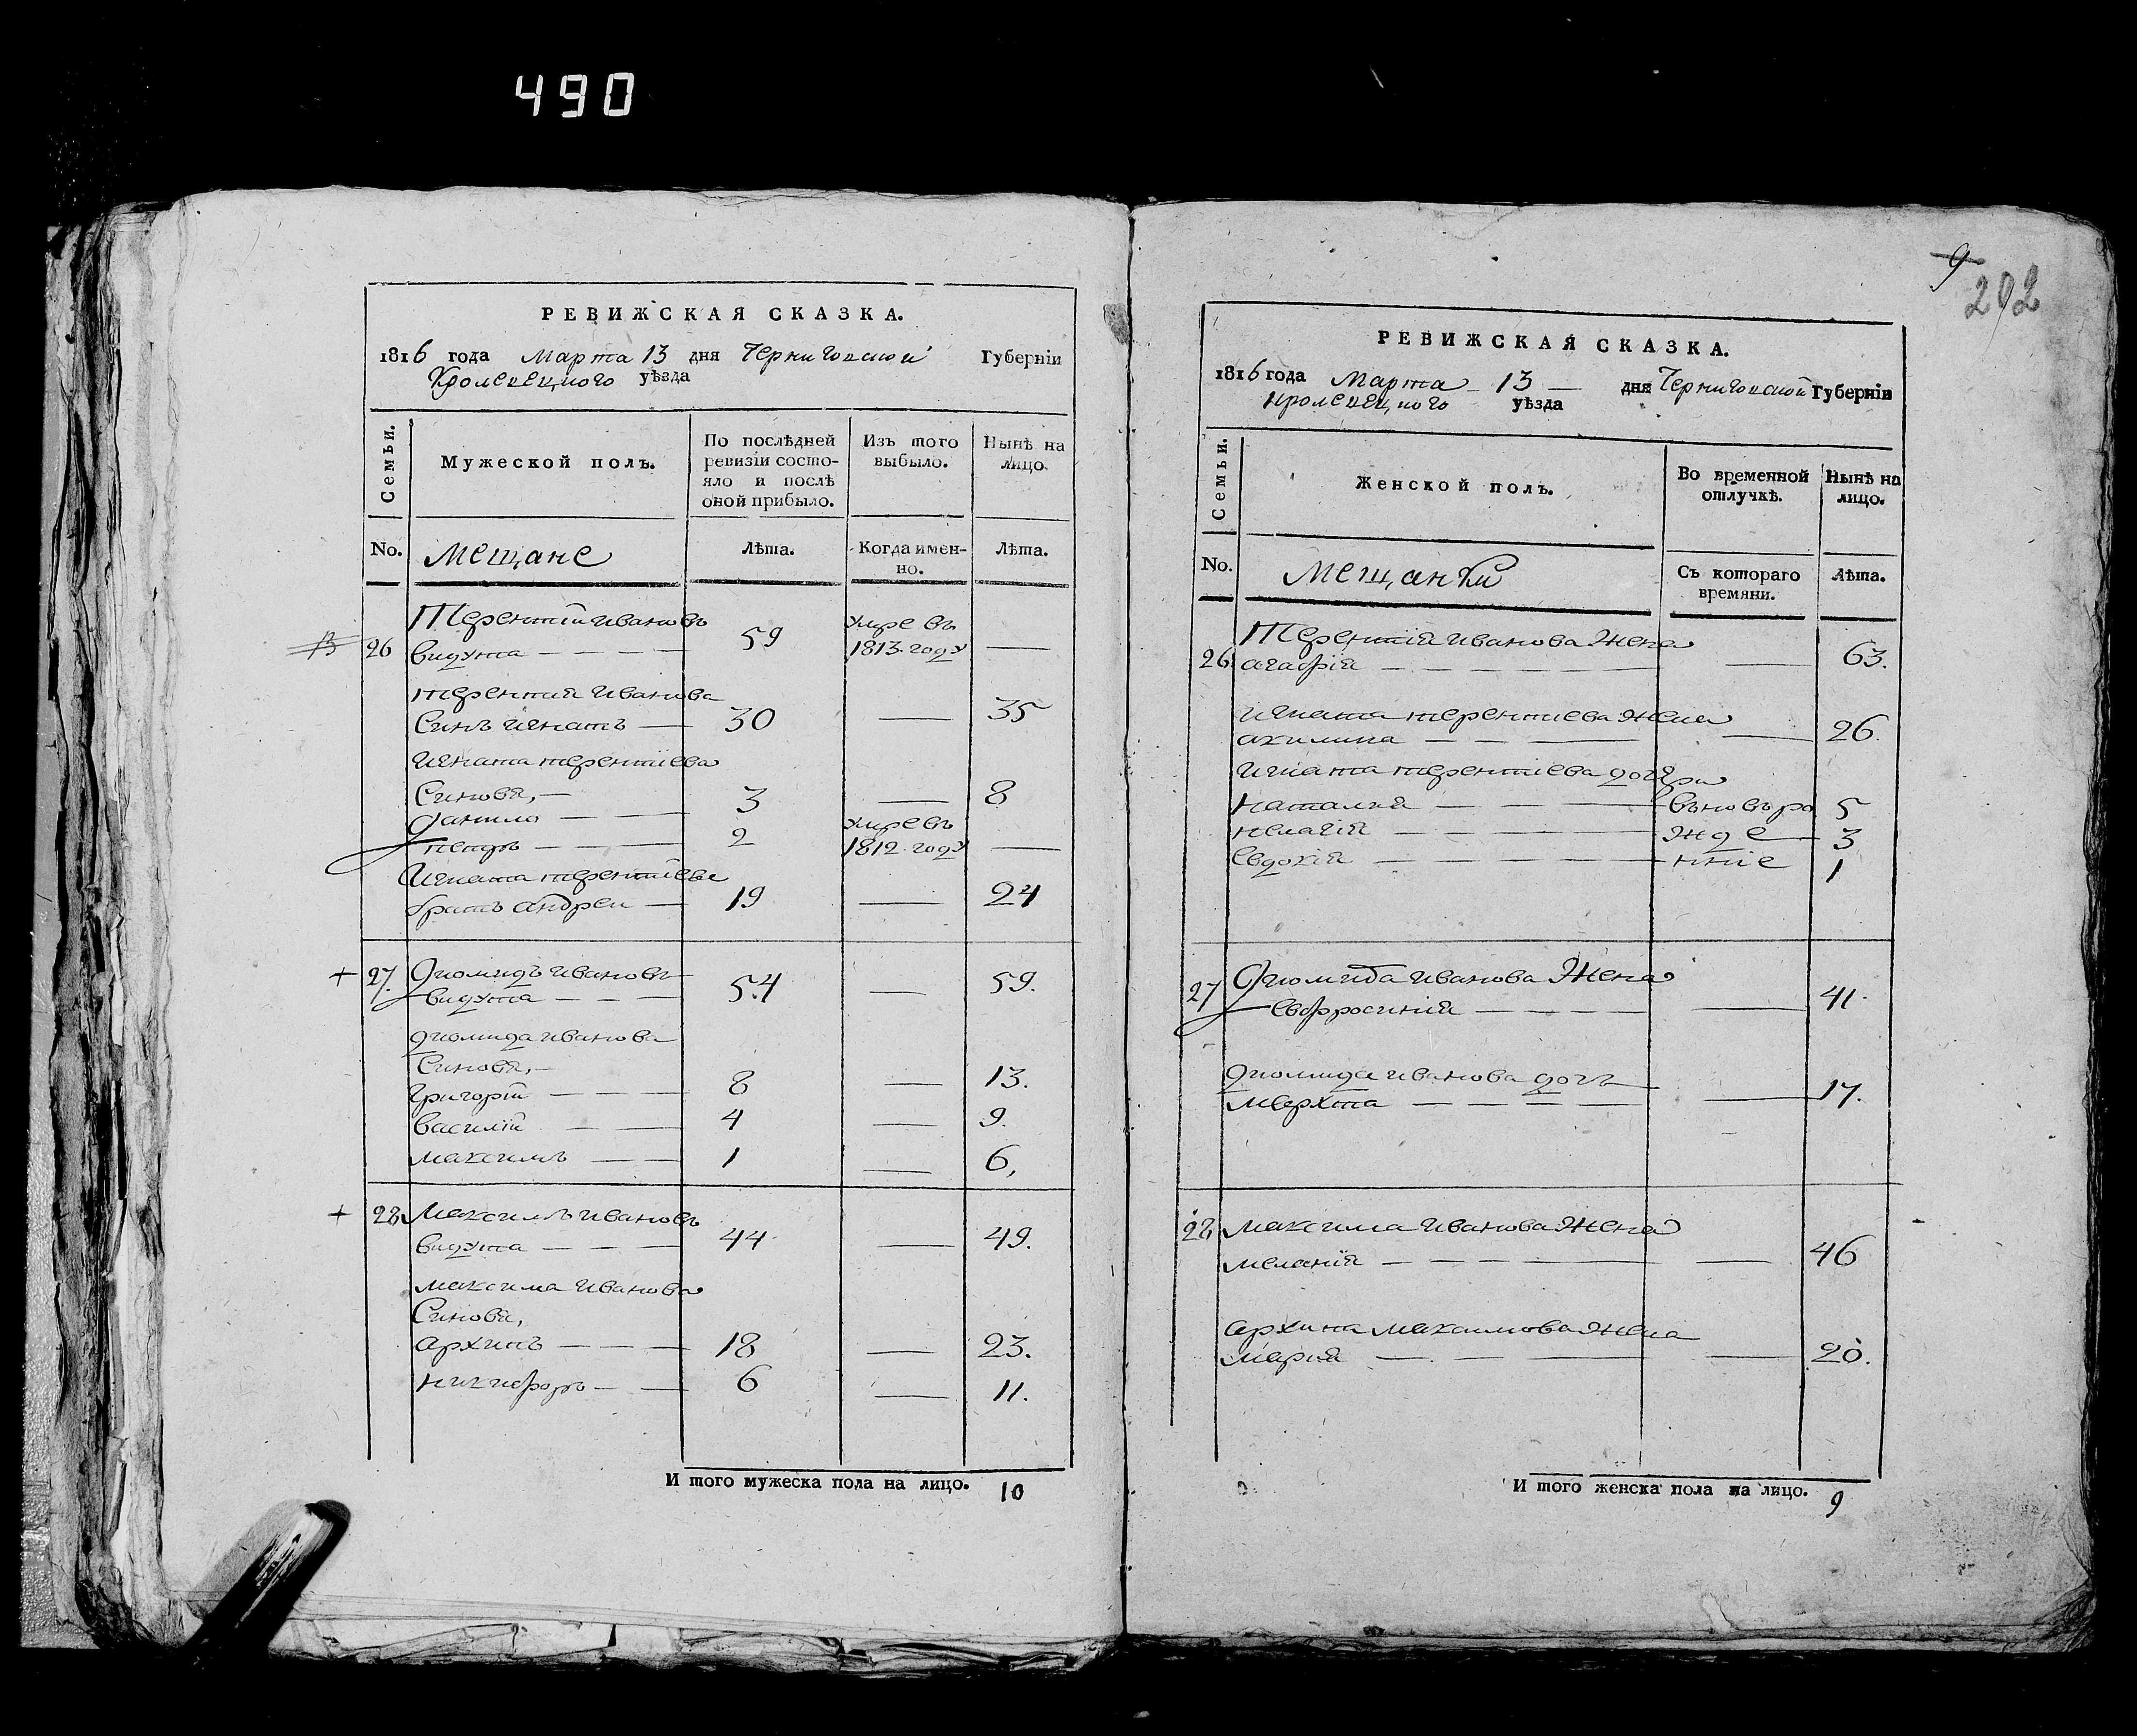 490
РЕВИЖСКАЯ СКАЗКА.
1816 года Марта 13 дня Черниговской Губерніи
Кролевецкого уѣзда
Семьи.
Мужеской полъ.
По послѣдней ревизіи состо-
яло и послѣ
оной прибыло.
Изъ того
выбыло.
Нынѣ на
лицо.
No.
Мещане
Лѣта.
Когда имен-
но.
Лѣта.
Терентій Ивановъ
26 Видута — — — — 59 умре въ 1813 году —
Терентия Иванова
Синъ Игнатъ — 30 — 35
Игната терентіева
Синовя, —
Данило — — 3 — 8
петръ — — — 2 умре въ 1812 году —
Игната терентіева
братъ андреи — 19 — 24
+ 27. Диомидъ Ивановъ
Видута — — — 54 — 59.
диомида иванова
Синовя, —
Григорій — — — 8 — 13.
Василій — — 4 — 9.
максимъ — — 1 — 6,
+ 28 Максимъ Ивановъ
Видута — — — 44 — 49.
максима Иванова
Синовя,
архипъ — — — 18 — 23.
никифоръ — — 6 — 11.
И того мужеска пола на лицо. 10
9
202
РЕВИЖСКАЯ СКАЗКА.
1816 года Марта 13 — дня Черниговской Губерніи
кролевецкого уѣзда
Семьи.
Женской полъ.
Во временной
отлучкѣ.
Нынѣ на
лицо.
No.
Мещанки
Съ котораго
времяни.
Лѣта.
Терентія Иванова Жена
26 агафія — — — — — — 63.
Игната терентиева жена
акилина — — — — 26.
Игната терентіева дочери
наталия — — — въновъро 5
пелагія — — — — жде 3
Евдокія — — — — — ннiе 1
27 Диомида Иванова Жена
Евфросиния — — — — — 41.
диомида иванова дочь
марѳта — — — — — 17.
28 Максима Иванова Жена
меланія — — — — — — 46
архипа максимова жена
мария — — — — — 20.
И того женска пола на лицо. 9